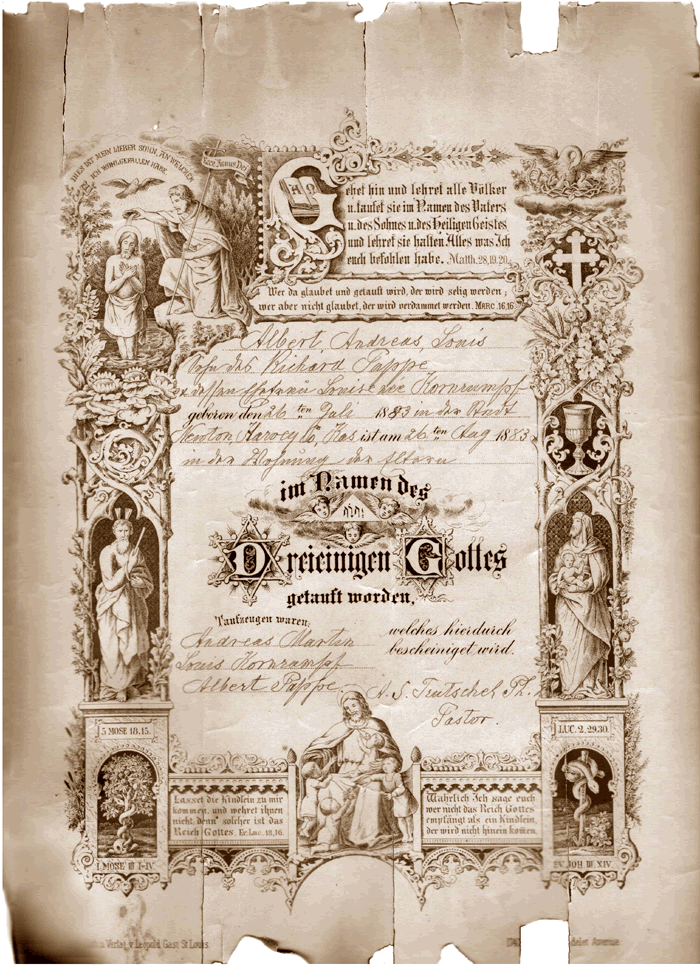 DIES IST MEIN LIEBER SOHN, AN WELCHEM
ICH WOHLGEFALLEN HABE
Ecce Agnus Dei
Gehet hin und lehret alle Völker
u. taufet sie im Namen des Vaters
u. des Sohnes u. des Heiligen Geistes
und lehret sie halten Alles was Ich
euch befohlen habe. Matth. 28,19.20.
Wer da glaubet und getauft wird, der wird selig werden;
wer aber nicht glaubet, der wird verdammet werden. MARC. 16,16
Albert Andreas Louis
Sohn des Richard Pappe
u dessen Ehefrau Louise geb Kornrumpf
geboren den 26 ten Juli 1883 in der Stadt
Newton Harvey Co, Kas. ist am 26 ten Aug 1883
in der Wohnung der Eltern
im Namen des
Dreieinigen Gottes
getauft worden,
Taufzeugen waren:
welches hierdurch
bescheiniget wird.
Andreas Martin
Louis Kornrumpf
Albert Pappe
Pastor.
5 MOSE 18.15.
LUC. 2, 29.30.
Lasset die Kindlein zu mir
kommen, und wehret ihnen
nicht, denn solcher ist das
Reich Gottes. Ev. Luc. 18,16.
Wahrlich Ich sage euch
wer nicht das Reich Gottes
empfängt als ein Kindlein,
der wird nicht hinein kom̄en.
1. MOSE III 1-IV.
EV. JOH III. XIV.
Verlag v. Leopold Gast St Louis
Avenue